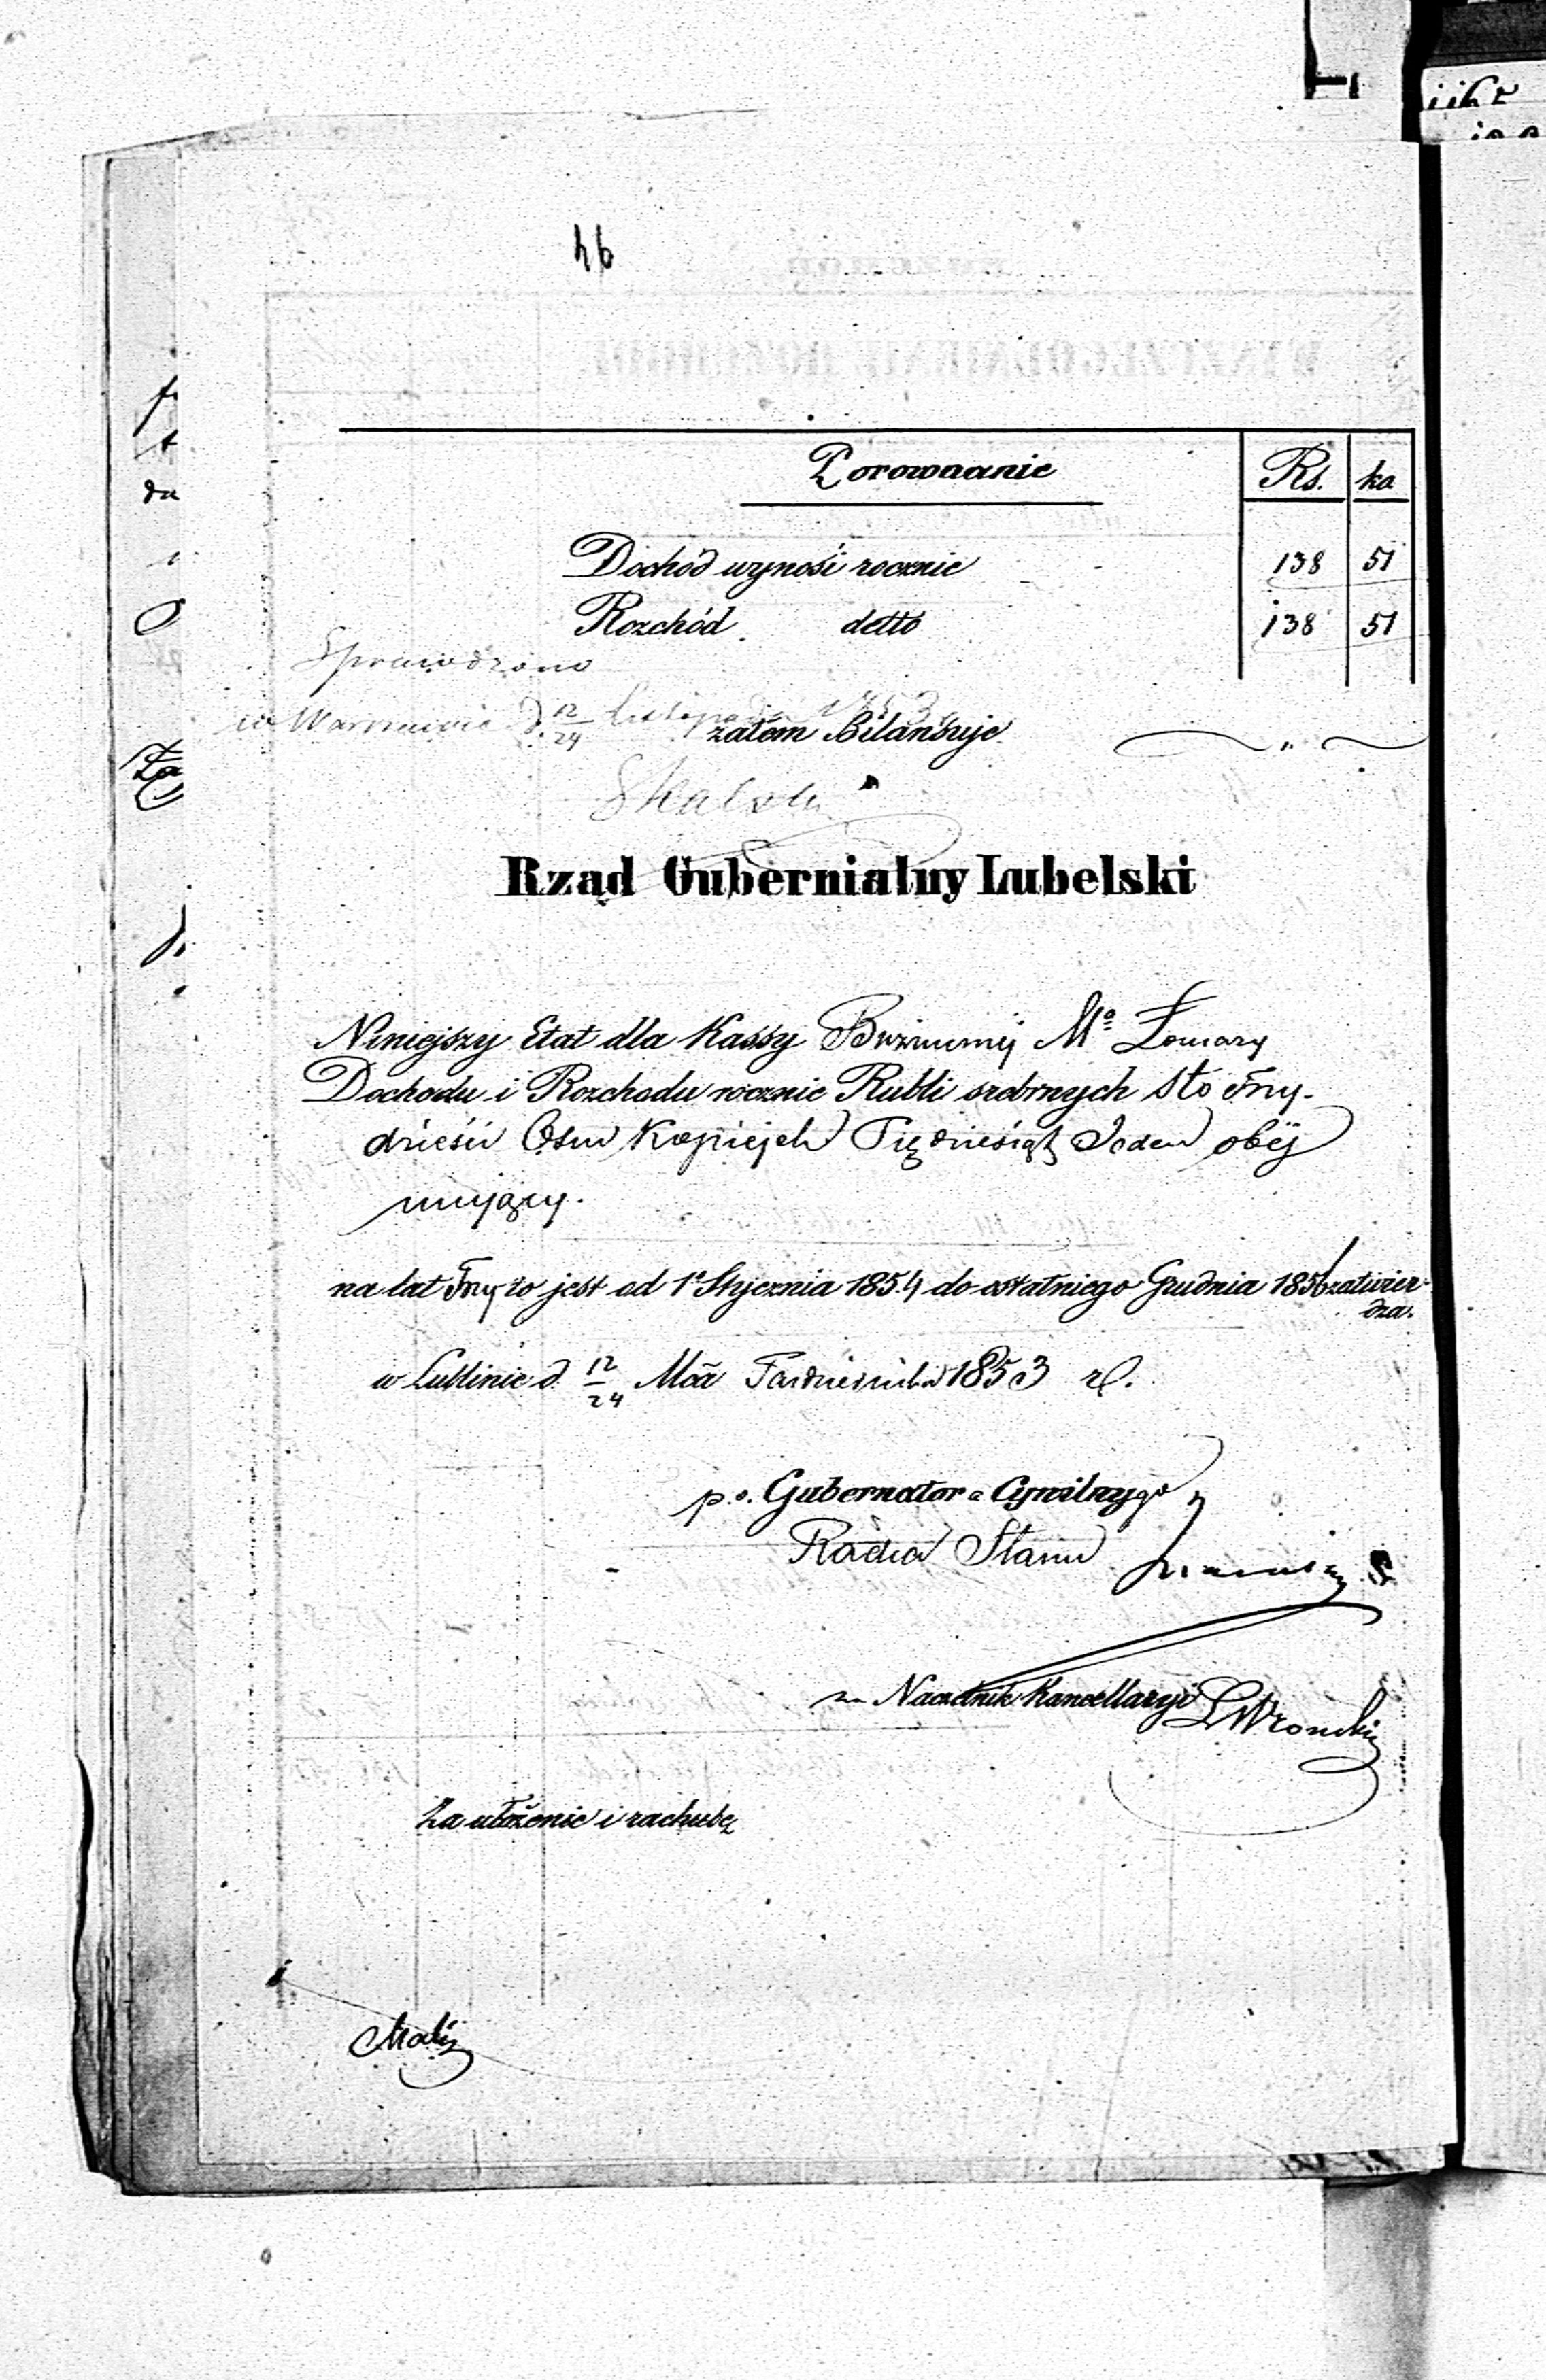 46
Porownanie Rs. ko
Dochód wynosi rocznie 138 51
Rozchód detto 138 51
Sprawdzono
w Warszawie d. 12/24 Listopada 1853
zatem Bilansuje "
Rząd Gubernialny Lubelski
Niniejszy Etat dla Kassy Bóżniczej Mᵃ Łomazy
Dochodu i Rozchodu rocznie Rubli srebrnych Sto Trzy-
dzieści Osm Kopiejek Pięćdziesiąt Jeden obej
mujący.
na lat Trzy to jest od 1º Stycznia 1854 do ostatniego Grudnia 1856 zatwier-
dza.
w Lublinie d. 12/24 Mca Października 1853 r.
p.o. Gubernatora Cywilnego
Radca Stanu
Naczelnik Kancellaryi Wronski
Za ułożenie i rachubę